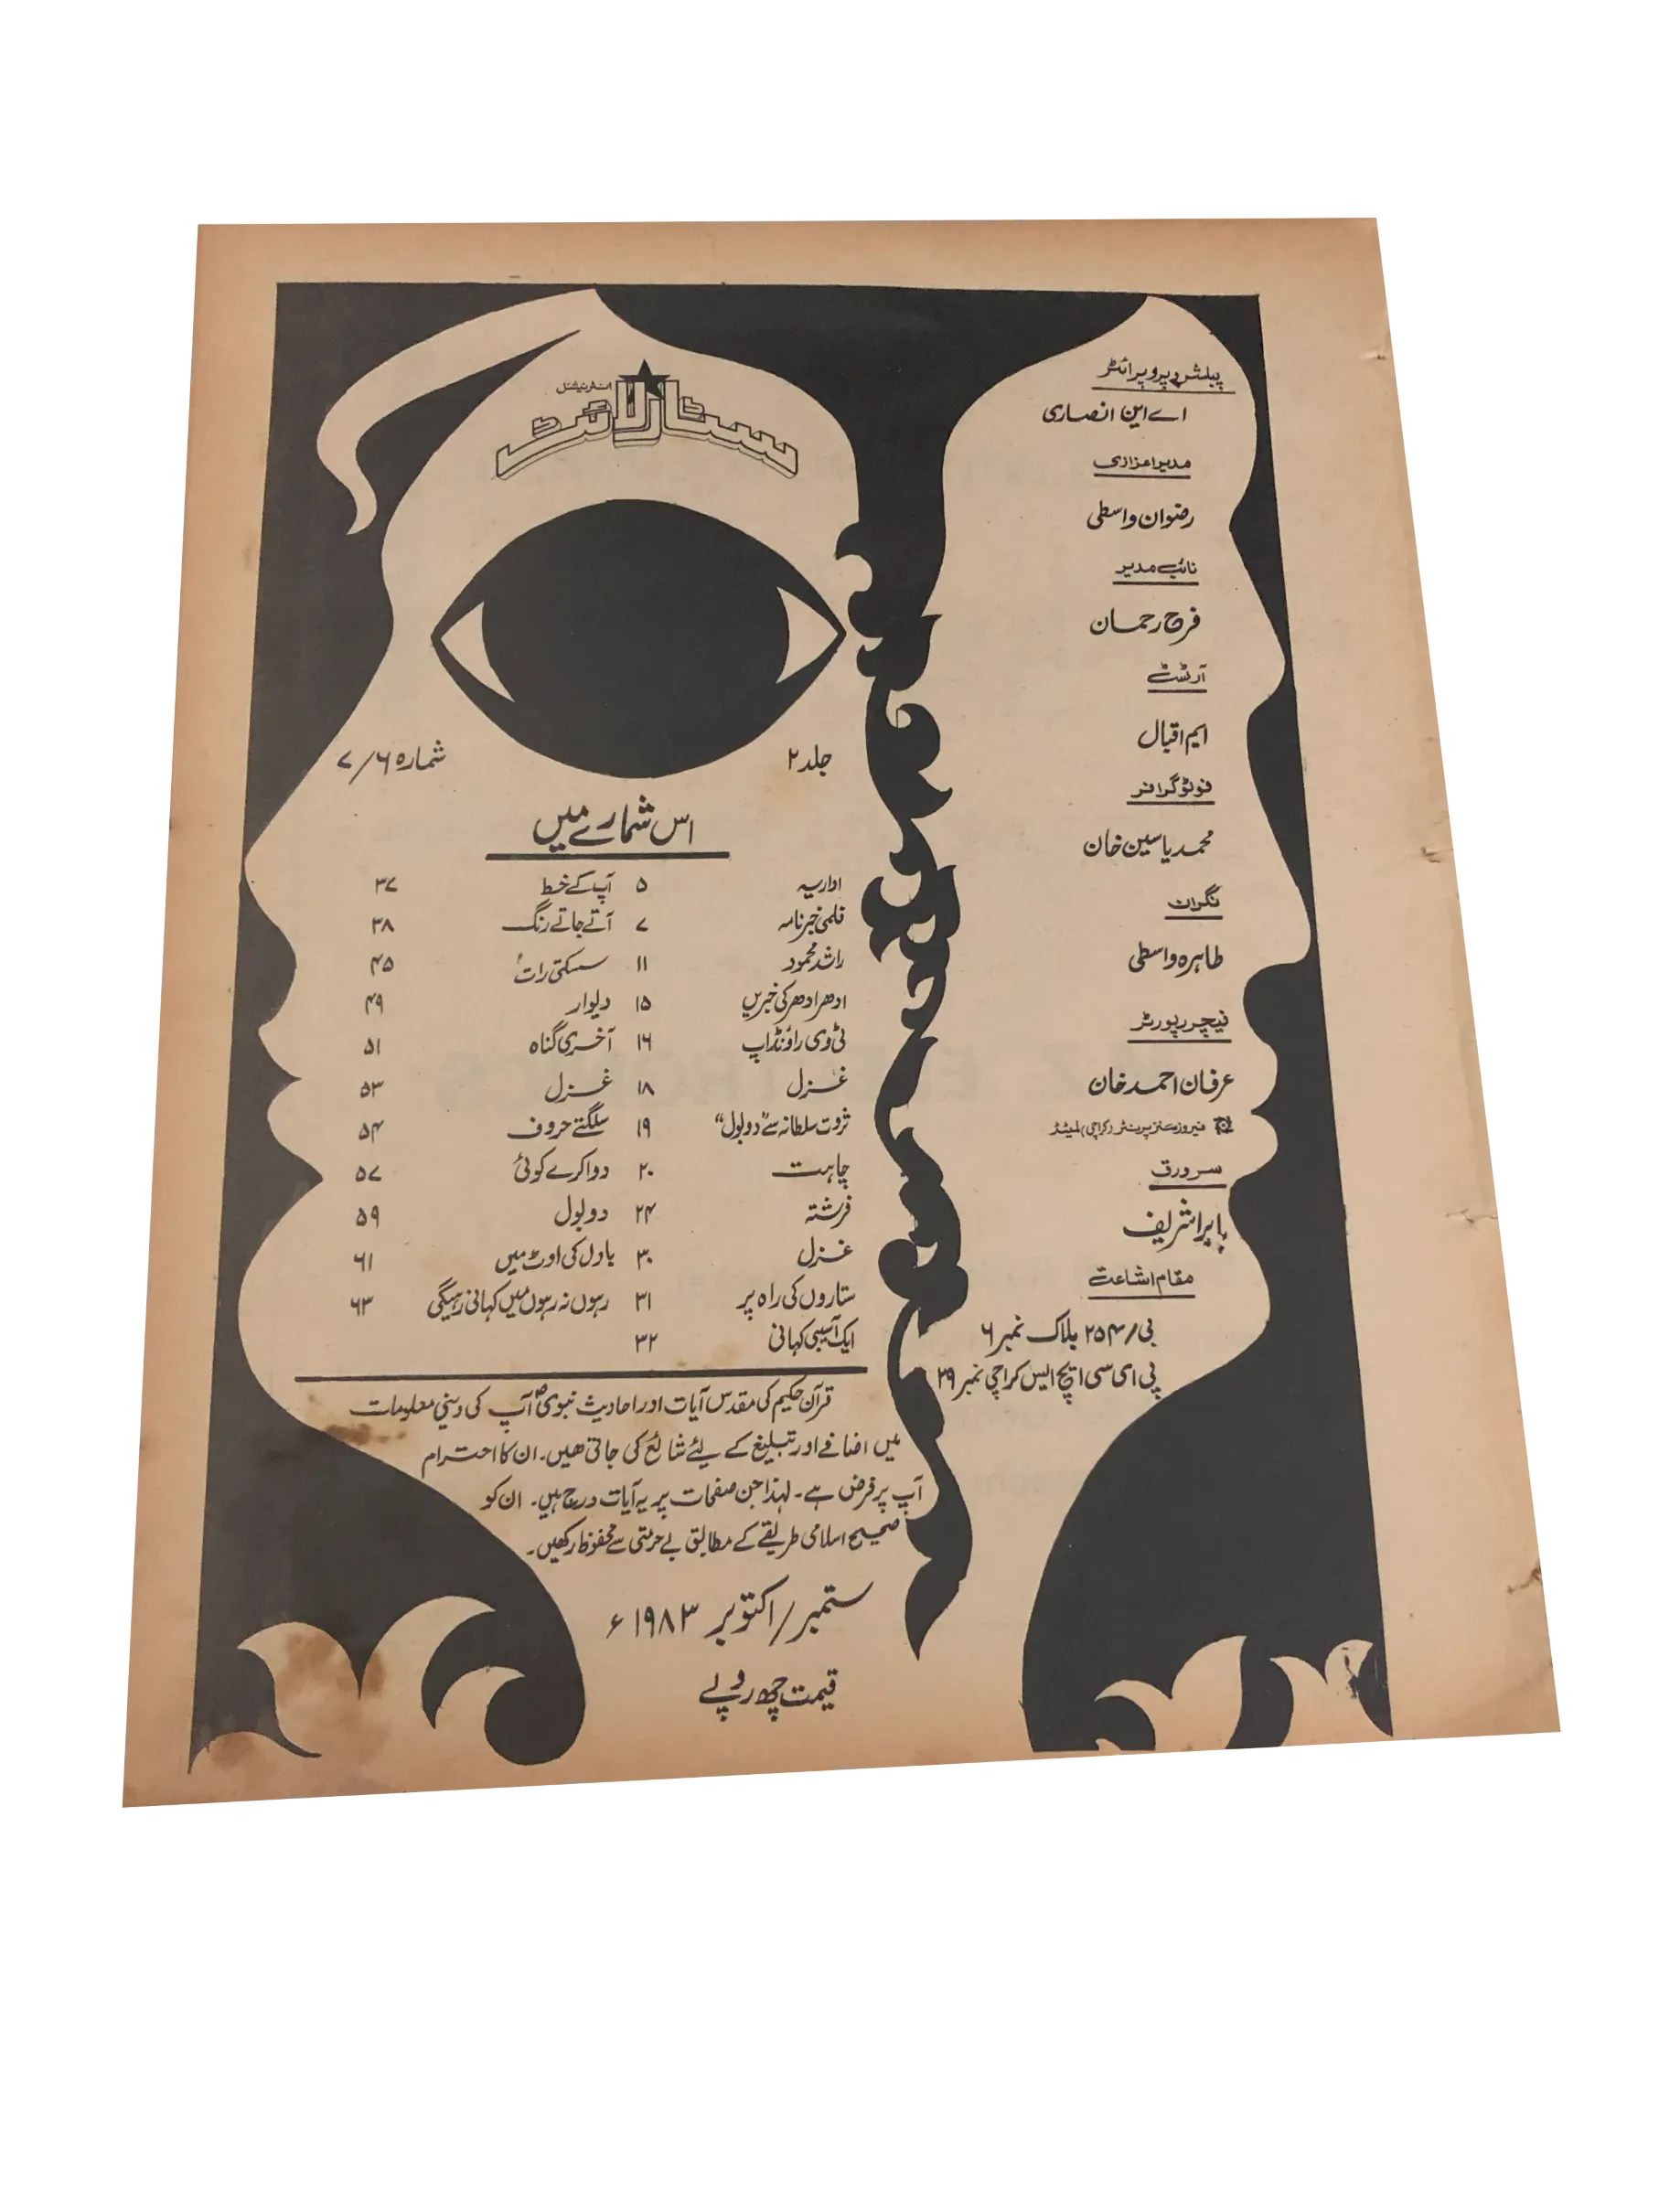 پبلشر و پروپرائٹر
اے این انصاری
مدیر اعزازی
رضوان واسطی
نائب مدیر
فرح رحمان
آرٹسٹ
ایم اقبال
فوٹوگرافر
محمد یاسین خان
نگران
طاہرہ واسطی
فیچر رپورٹر
عرفان احمد خان
فیروز سنز پرنٹر (کراچی) لمیٹڈ
سرورق
بابرا شریف
مقام اشاعت
بی/۲۵۴ بلاک نمبر ۶
پی ای سی ایچ ایس کراچی نمبر ۲۹
انٹرنیشنل
سٹارلائٹ
جلد ۲ شمارہ ۶/۷
اس شمارے میں
اداریہ ۵ آپ کے خط ۳۷
فلمی خبرنامہ ۷ آتے جاتے رنگ ۳۸
راشد محمود ۱۱ سسکتی رات ۴۵
ادھر ادھر کی خبریں ۱۵ دیوار ۴۹
ٹی وی راؤنڈ اپ ۱۶ آخری گناہ ۵۱
غزل ۱۸ غزل ۵۳
ثروت سلطانہ سے "دو بول" ۱۹ سلگتے حروف ۵۴
چاہت ۲۰ دوا کرے کوئی ۵۷
فرشتہ ۲۴ دو بول ۵۹
غزل ۳۰ بادل کی اوٹ میں ۶۱
ستاروں کی راہ پر ۳۱ رہوں نہ رہوں میں کہانی رہیگی ۶۳
ایک آسیبی کہانی ۳۲
قرآن حکیم کی مقدس آیات اور احادیث نبویؐ آپ کی دینی معلومات
میں اضافے اور تبلیغ کے لئے شائع کی جاتی ھیں۔ ان کا احترام
آپ پر فرض ہے۔ لہذا جن صفحات پر یہ آیات درج ہیں۔ ان کو
صحیح اسلامی طریقے کے مطابق بے حرمتی سے محفوظ رکھیں۔
ستمبر/اکتوبر ۱۹۸۳ء
قیمت چھ روپے